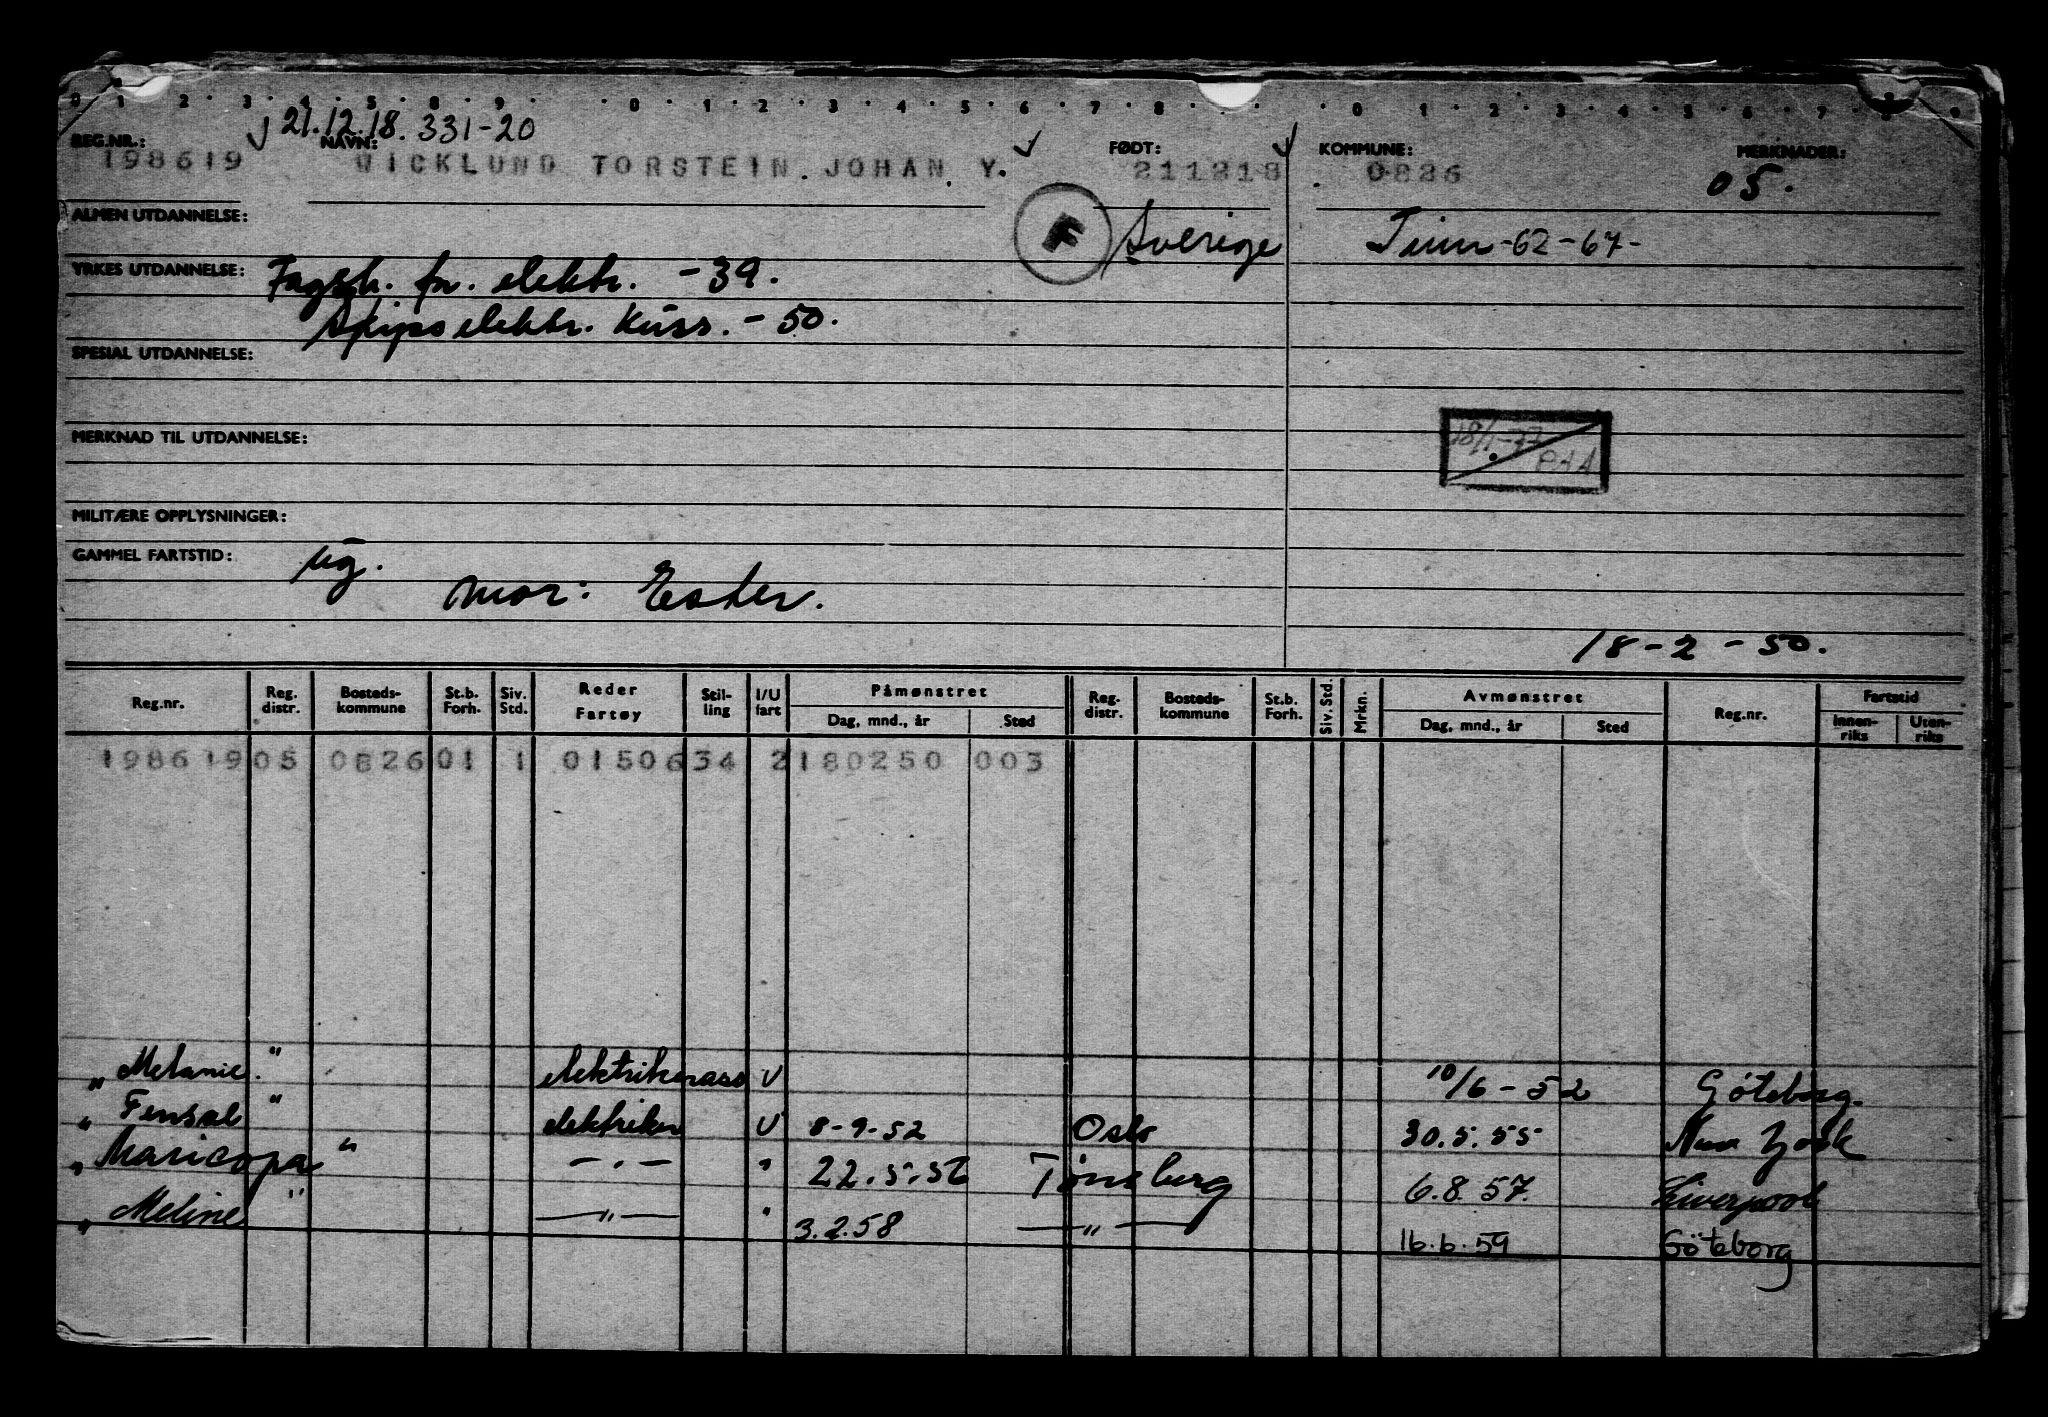 0 1 2 3 4 5 8 9 0 1 2 3 4 5 6 7 8 0 1 2 3 4 5 6 7 8 9
21.12.18. 331-20
REG.NR.: NAVN: FØDT: KOMMUNE: MERKNADER:
198619 WICKLUND TORSTEIN JOHAN Y. 211218 0826 05.
ALMEN UTDANNELSE: F Sverige Tinn -62-67-
YRKES UTDANNELSE: Fagsk. for elektr. -39.
Skips elektr. kurs. -50.
SPESIAL UTDANNELSE:
MERKNAD TIL UTDANNELSE:
18/1-77
MILITÆRE OPPLYSNINGER:
GAMMEL FARTSTID: ug.
Mor: Ester.
18-2-50.
Reg.nr. Reg. distr. Bosteds- kommune St.b. Forh. Siv. Std. Reder Fartøy Stil- ling I/U fart Påmønstret Dag, mnd., år Sted Reg. distr. Bosteds- kommune St.b. Forh. Siv. Std. Mrkn. Avmønstret Dag, mnd., år Sted Reg.nr. Fartstid Innen- riks Uten- riks
198619 05 0826 01 1 01506 34 2 180250 003
„ Melanie " elektrikerass U 10/6-52 Göteborg.
„ Fensal " elektriker U 8-9-52 Oslo 30.5.55 New York
„ Maricopa " —.— " 22.5.56 Tønsberg 6.8.57. Liverpool
„ Meline " —„— " 3.2.58 —„— 16.6.59 Göteborg